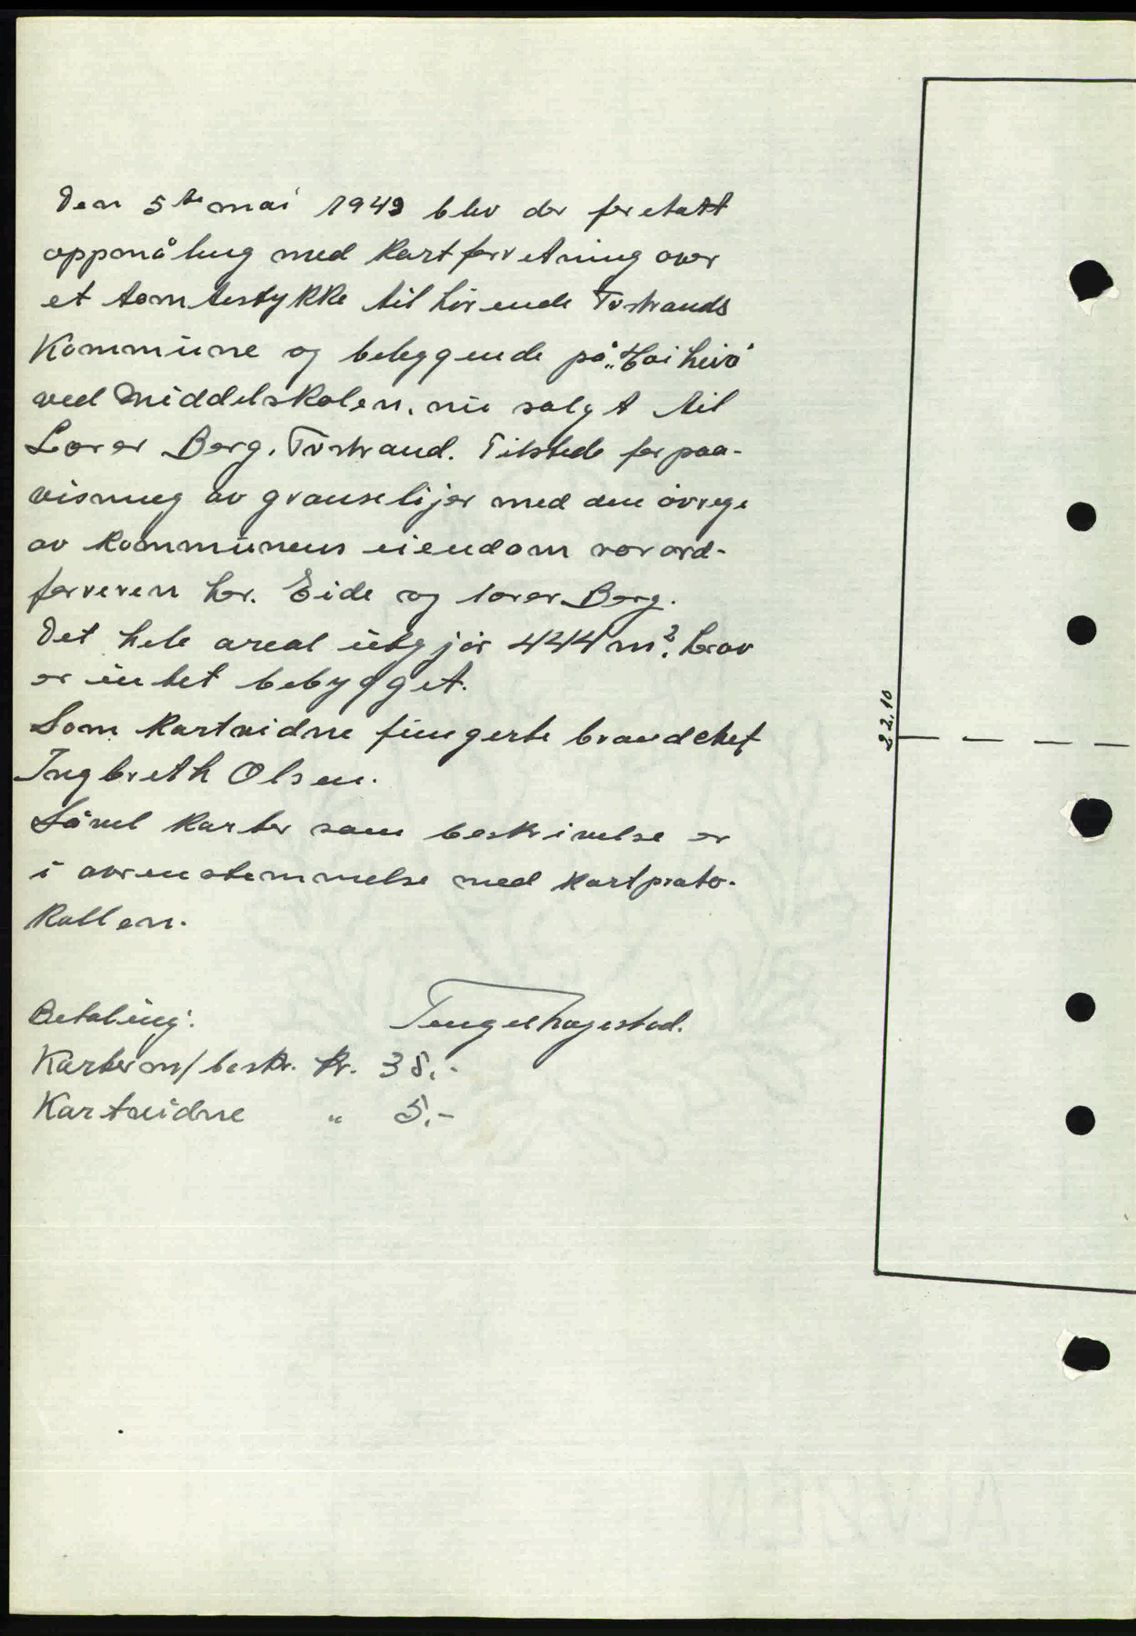 Den 5te mai 1949 blev der foretatt
oppmåling med kartforretning over
et tomtestykke tilhörende Tvstrands
Kommune og beliggende på
ved Middelskolen, nu solgt til
Lærer Berg. Tvstrand. Tilstede for paa-
visning av grænselijer med den övrige
av kommunens eiendom var ord-
förreren hr. Eide og lærer Berg.
Det hele areal utgjör 444 m². hvorav
er intet bebygget.
Som kartvidne fungerte brandchef
Ingbreth Olsen.
Såvel karter som beskrivelse er
i overenstemmelse med kartproto-
kollen.
Betaling:
Karter m/beskr. kr. 38.-
Kartvidne " 5.-
22.10